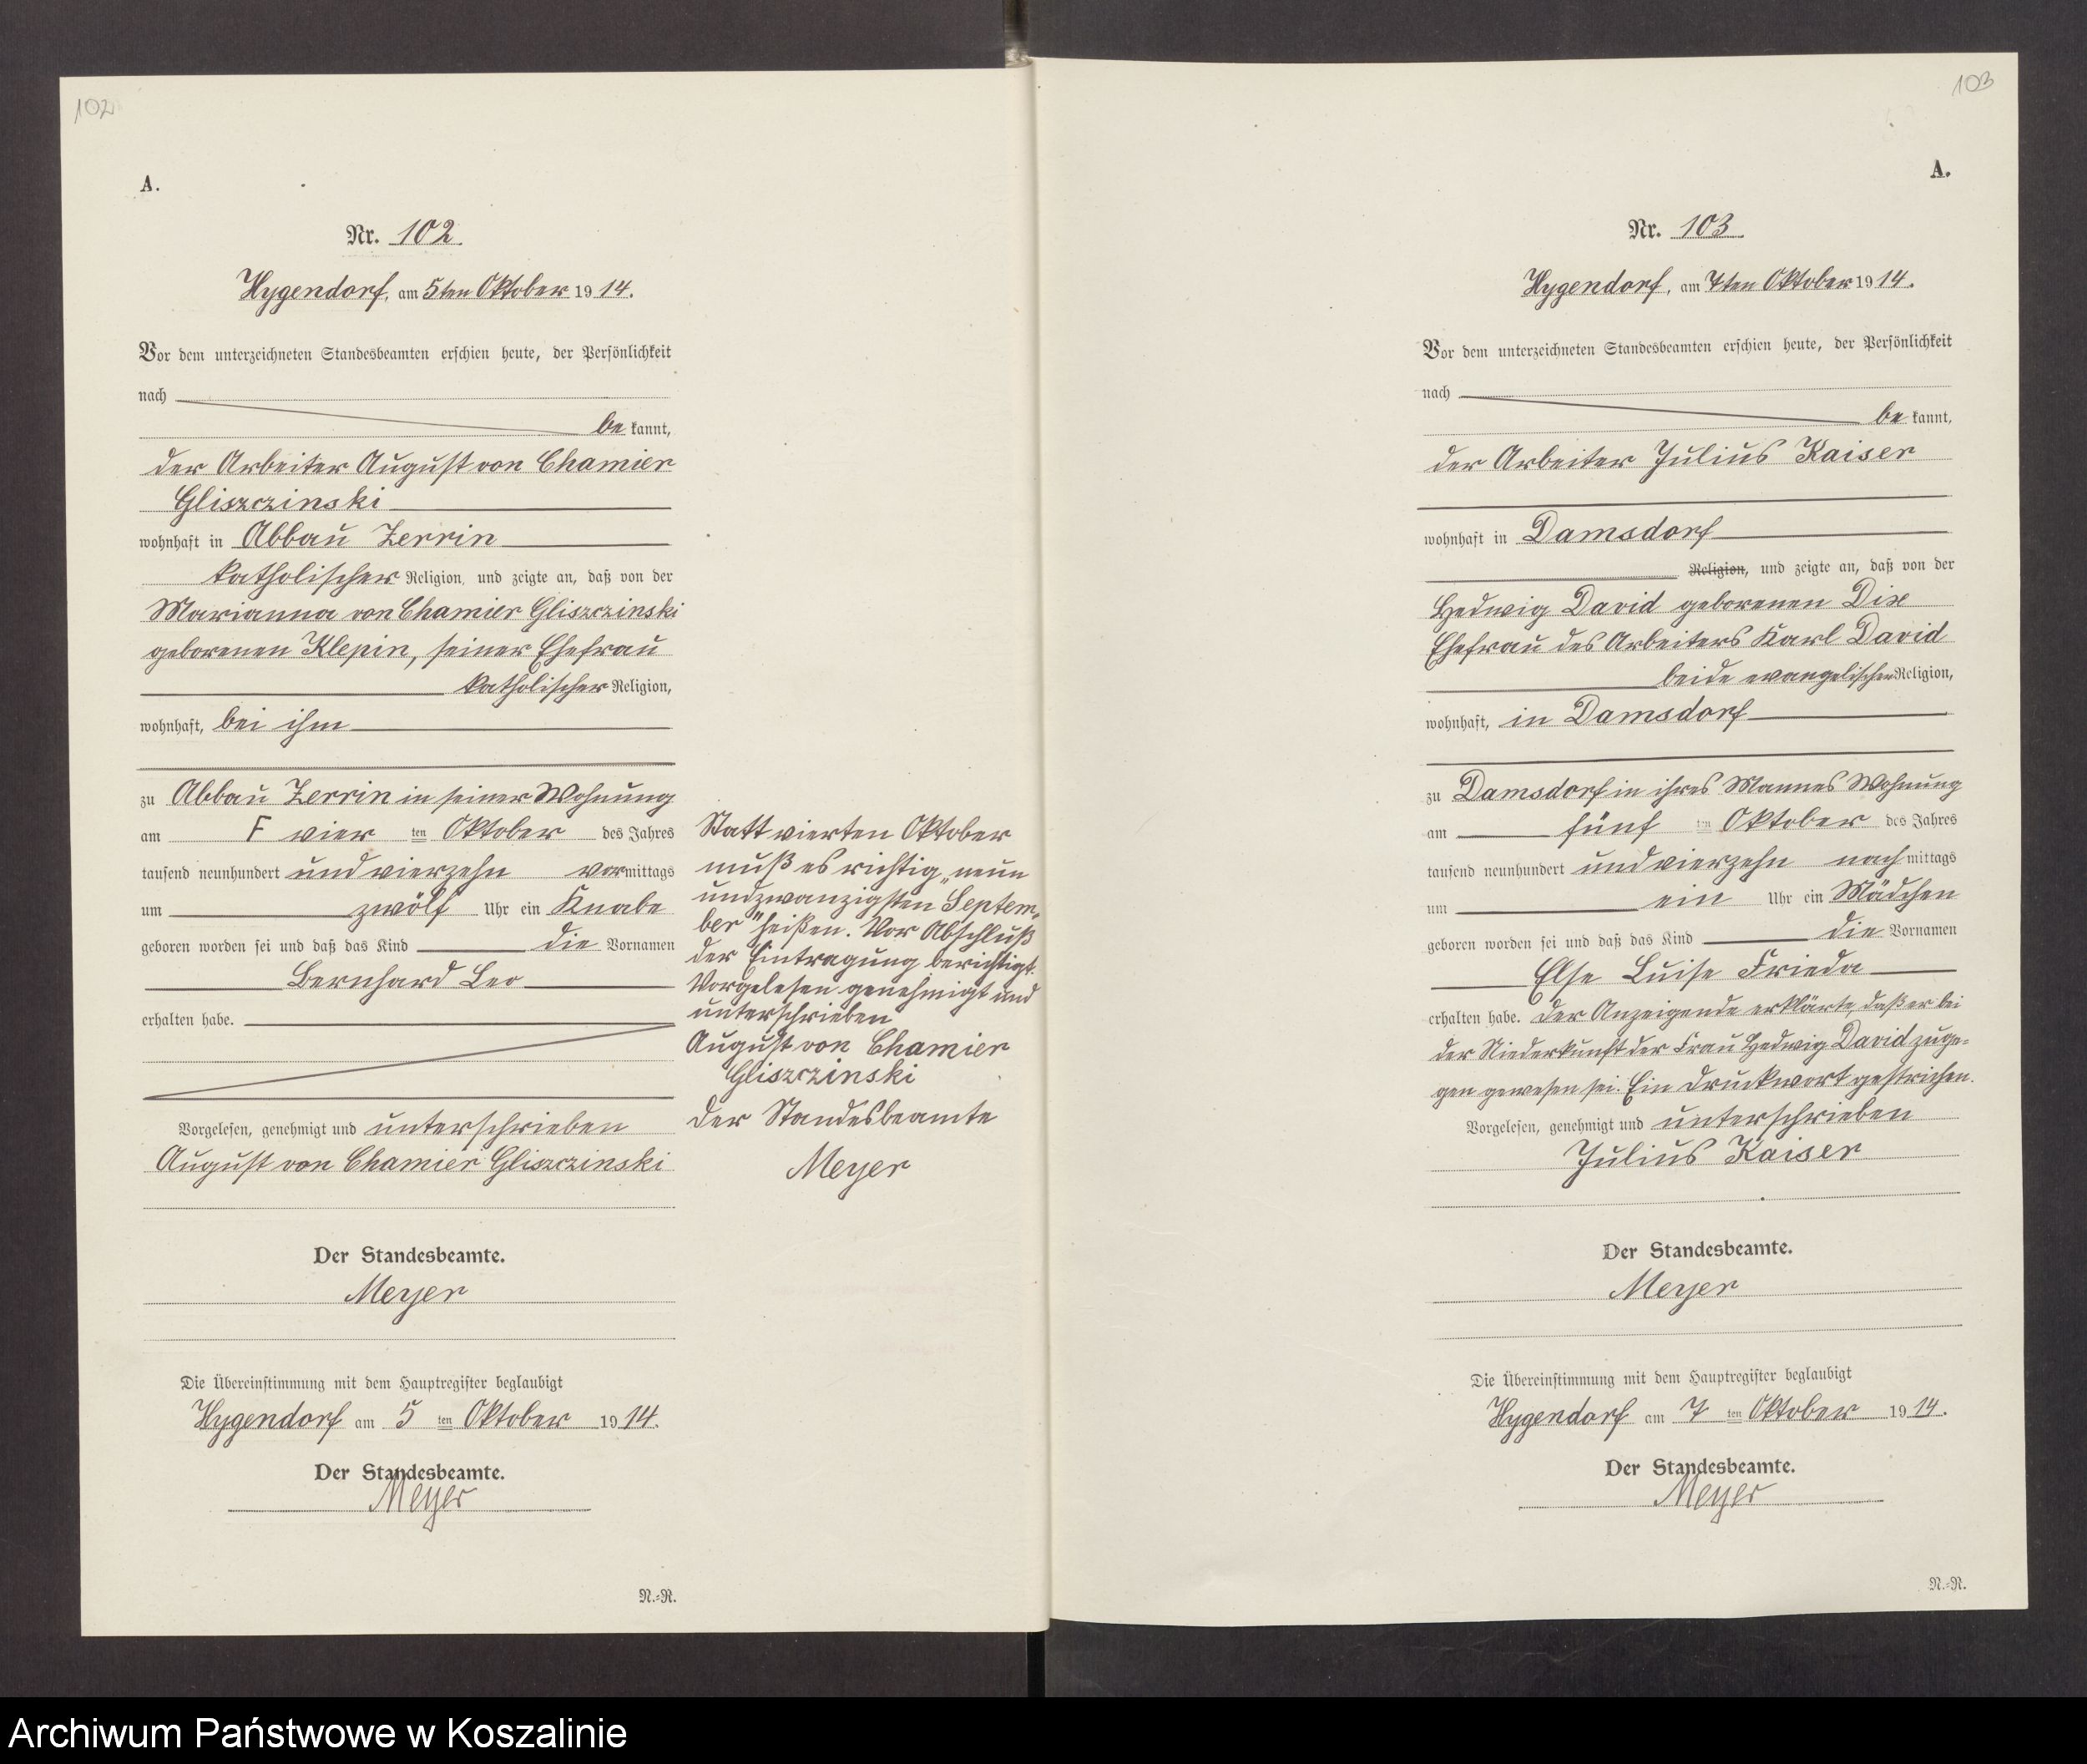 102
A.
Nr. 102.
Hygendorf, am 5ten Oktober 1914.
Vor dem unterzeichneten Standesbeamten erschien heute, der Persönlichkeit
nach
be kannt,
der Arbeiter August von Chamier
Gliszczinski
wohnhaft in Abbau Zerrin
katholischer Religion, und zeigte an, daß von der
Marianna von Chamier Gliszczinski
geborenen Klepin, seiner Ehefrau
katholischer Religion,
wohnhaft, bei ihm
zu Abbau Zerrin in seiner Wohnung
am F vier ten Oktober des Jahres
tausend neunhundert und vierzehn vormittags
um zwölf Uhr ein Knabe
geboren worden sei und daß das Kind die Vornamen
Bernhard Leo
erhalten habe.
Vorgelesen, genehmigt und unterschrieben
August von Chamier Gliszczinski
Der Standesbeamte.
Meyer
Die Übereinstimmung mit dem Hauptregister beglaubigt
Hygendorf am 5 ten Oktober 1914.
Der Standesbeamte.
Meyer
N.=R.
Statt vierten Oktober
muß es richtig „neun
undzwanzigsten Septem-
ber" heißen. Vor Abschluß
der Eintragung berichtigt.
Vorgelesen genehmigt und
unterschrieben
August von Chamier
Gliszczinski
Der Standesbeamte
Meyer
103
A.
Nr. 103.
Hygendorf, am 7ten Oktober 1914.
Vor dem unterzeichneten Standesbeamten erschien heute, der Persönlichkeit
nach
be kannt,
der Arbeiter Julius Kaiser
wohnhaft in Damsdorf
Religion, und zeigte an, daß von der
Hedwig David geborenen Dix
Ehefrau des Arbeiters Karl David
beide evangelischer Religion,
wohnhaft, in Damsdorf
zu Damsdorf in ihres Mannes Wohnung
am fünf ten Oktober des Jahres
tausend neunhundert und vierzehn nachmittags
um ein Uhr ein Mädchen
geboren worden sei und daß das Kind die Vornamen
Else Luise Frieda
erhalten habe. Der Anzeigende erklärte, daß er bei
der Niederkunft der Frau Hedwig David zuge-
gen gewesen sei. Ein Druckwort gestrichen.
Vorgelesen, genehmigt und unterschrieben
Julius Kaiser
Der Standesbeamte.
Meyer
Die Übereinstimmung mit dem Hauptregister beglaubigt
Hygendorf am 7 ten Oktober 1914.
Der Standesbeamte.
Meyer
N.=R.
Archiwum Państwowe w Koszalinie